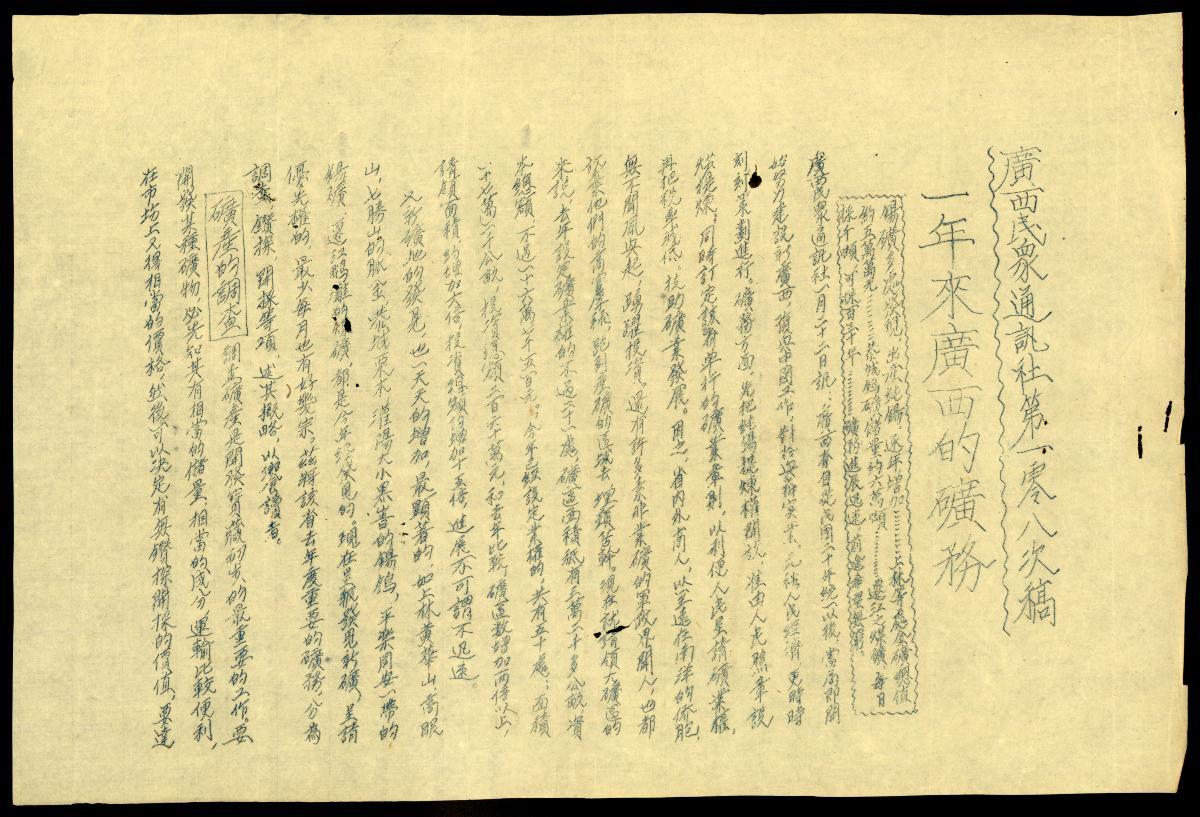 廣西民衆通訊社第一零八次稿
一年來廣西的礦務
錫礦多處發現，出凉純錫，逐年增加………上林等處金礦總值
約五萬萬元………恭城鎢礦儲量約六萬噸………遷江之煤礦，每日
採千噸，可供百年………礦務進展迅速，前途希望無窮。
廣西民衆通訊社一月二十二日訊：廣西省自從民國二十年統一以後，當局即開
始努力建設新廣西，復興中國工作，對於興辦實業，充裕人民經濟，更時時
刻刻策劃進行。礦務方面，先把純錫提煉權開放，准由人民照章設
爐提煉；同時訂定該辦單行的礦業章則，以利便人民呈請礦業權，
再把稅率減低，扶助礦業發展。因之，省內外商人，以至遠在南洋的僑胞，
無不聞風興起，踴躍投資。還有許多素非業礦的軍政界聞人，也都
拋棄他們的高華株，跑到產礦的區域去，埋頭苦幹。現在就請領大礦區的
來說，去年設定礦業權的不過二十一處，礦區面積祇有三萬二千多公畝，資
光總額，不過一十六萬七千五百元；今年已經設定業權的，共有五十處；面積
一十七萬一千公畝，投資總額二百六十萬元，和去年比較，礦區數增加兩倍以上，
請領面積，約增加六倍，投資總額係增加十五倍，進展不可謂不迅速。
又新礦地的發見，也一天天的增加，最顯著的，如上林黃華山，高眼
山，七勝山的脈金，恭城栗木，灌陽大小黑岩的錫鎢，平樂同安一帶的
錫礦，遷江鵝灘的煤礦，都是今年繞發見的。現在呈報發見新礦，呈請
優先權的，最少每月也有好幾宗。茲將該省去年度重要的礦務，分為
調查，鑽探，開採等項，述其概略，以饗讀者。
礦產的調查 調查礦產是開發寶藏初步的最重要的工作，要
開採某種礦物，必先知其有相當的儲量，相當的成分，運輸比較便利，
在市場上又得相當的價格，然後可以決定有無鑽探開採的價值，要達